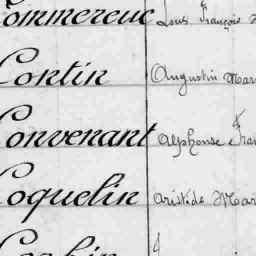 Commereuc Louis François
Contin Augustin Mar
Convenant Alphonse Fran
Coquelin Aristide Mar